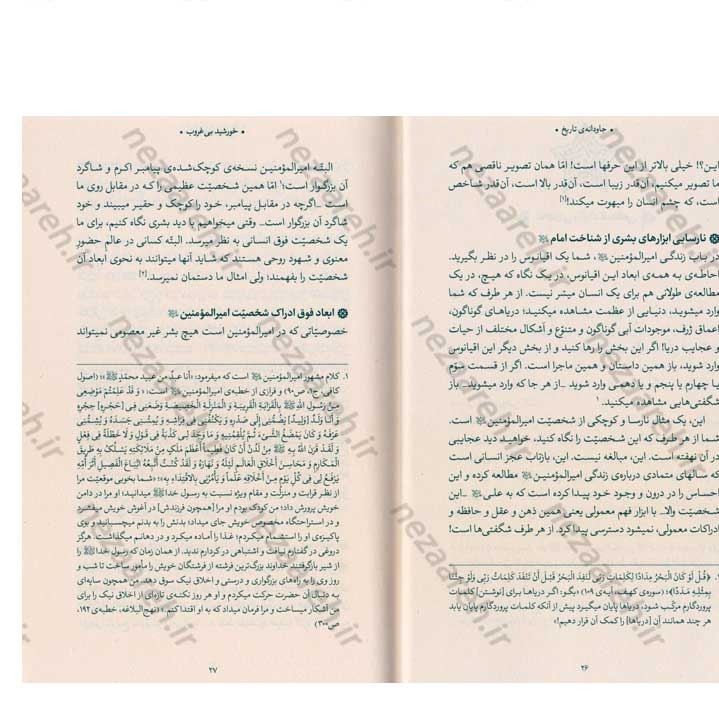 • جاودانه‌ی تاریخ •
این؟! خیلی بالاتر از این حرفها است! امّا همان تصویر ناقصی هم که
ما تصویر میکنیم، آن‌قدر زیبا است، آن‌قدر بالا است، آن‌قدر شاخص
است، که چشم انسان را مبهوت میکند![۱]
نارسایی ابزارهای بشری از شناخت امام
در باب زندگی امیرالمؤمنین، شما یک اقیانوس را در نظر بگیرید.
احاطه‌ی به همه‌ی ابعاد این اقیانوس، در یک نگاه که هیچ، در یک
مطالعه‌ی طولانی هم برای یک انسان میسّر نیست. از هر طرف که شما
وارد میشوید، دنیایی از عظمت مشاهده میکنید؛ دریاهای گوناگون،
اعماق ژرف، موجودات آبی گوناگون و متنوّع و اَشکال مختلف از حیات
و عجایب دریا! اگر این بخش را رها کنید و از بخش دیگر این اقیانوس
وارد شوید، باز همین داستان و همین ماجرا است. اگر از قسمت سوّم
یا چهارم یا پنجم و یا دهمی وارد شوید ــ از هر جا که وارد میشوید ــ باز
شگفتی‌هایی مشاهده میکنید.۱
این، یک مثال نارسا و کوچکی از شخصیّت امیرالمؤمنین است.
شما از هر طرف که این شخصیّت را نگاه کنید، خواهید دید عجایبی
در آن نهفته است. این، مبالغه نیست. این، بازتاب عجز انسانی است
که سالهای متمادی درباره‌ی زندگی امیرالمؤمنین مطالعه کرده و این
احساس را در درون و وجود خود پیدا کرده است که به علی ــ این
شخصیّت والا ــ با ابزار فهم معمولی یعنی همین ذهن و عقل و حافظه و
ادراکات معمولی، نمیشود دسترسی پیدا کرد. از هر طرف شگفتی‌ها است!
۱. ﴿قُل لَّوْ كَانَ الْبَحْرُ مِدَادًا لِّكَلِمَاتِ رَبِّي لَنَفِدَ الْبَحْرُ قَبْلَ أَن تَنفَدَ كَلِمَاتُ رَبِّي وَلَوْ جِئْنَا
بِمِثْلِهِ مَدَدًا﴾؛ (سوره‌ی کهف، آیه‌ی ۱۰۹) «بگو: اگر دریاها برای [نوشتن] کلمات
پروردگارم مرکّب شود، دریاها پایان میگیرد پیش از آنکه کلمات پروردگارم پایان یابد
هر چند همانند آن [دریاها] را کمک آن قرار دهیم!»
۲۶
• خورشید بی‌غروب •
البتّه امیرالمؤمنین نسخه‌ی کوچک‌شده‌ی پیامبر اکرم و شاگرد
آن بزرگوار است؛۱ امّا همین شخصیّت عظیمی را که در مقابل روی ما
است ــ اگرچه در مقابل پیامبر، خود را کوچک و حقیر میبیند و خود
شاگرد آن بزرگوار است ــ وقتی میخواهیم با دید بشری نگاه کنیم، برای ما
یک شخصیّت فوق انسانی به نظر میرسد. البتّه کسانی در عالم حضورِ
معنوی و شهود روحی هستند که شاید آنها میتوانند به نحوی ابعاد آن
شخصیّت را بفهمند؛ ولی امثال ما دستمان نمیرسد.[۲]
ابعاد فوق ادراک شخصیّت امیرالمؤمنین
خصوصیّاتی که در امیرالمؤمنین است هیچ بشر غیر معصومی نمیتواند
۱. کلام مشهور امیرالمؤمنین است که میفرمود: «أنا عبدٌ من عبید محمّدٍ»؛ (اصول
کافی، ج۱، ص۹۰) و فرازی از خطبه‌ی امیرالمؤمنین است: «وَ قَدْ عَلِمْتُمْ مَوْضِعِی
مِنْ رَسُولِ اللَّهِ بِالْقَرَابَةِ الْقَرِیبَةِ وَ الْمَنْزِلَةِ الْخَصِیصَةِ وَضَعَنِی فِی [حَجْرِهِ] حِجْرِهِ
وَ أَنَا وَلَدٌ [وَلِیدٌ] یَضُمُّنِی إِلَی صَدْرِهِ وَ یَکْنُفُنِی فِی فِرَاشِهِ وَ یُمِسُّنِی جَسَدَهُ وَ یُشِمُّنِی
عَرْفَهُ وَ کَانَ یَمْضَغُ الشَّیْءَ ثُمَّ یُلْقِمُنِیهِ وَ مَا وَجَدَ لِی کَذْبَةً فِی قَوْلٍ وَ لَا خَطْلَةً فِی فِعْلٍ
وَ لَقَدْ قَرَنَ اللَّهُ بِهِ مِنْ لَدُنْ أَنْ کَانَ فَطِیماً أَعْظَمَ مَلَکٍ مِنْ مَلَائِکَتِهِ یَسْلُکُ بِهِ طَرِیقَ
الْمَکَارِمِ وَ مَحَاسِنَ أَخْلَاقِ الْعَالَمِ لَیْلَهُ وَ نَهَارَهُ وَ لَقَدْ کُنْتُ أَتَّبِعُهُ اتِّبَاعَ الْفَصِیلِ أَثَرَ أُمِّهِ
یَرْفَعُ لِی فِی کُلِّ یَوْمٍ مِنْ أَخْلَاقِهِ عَلَماً وَ یَأْمُرُنِی بِالِاقْتِدَاءِ بِهِ»؛ «شما بخوبی موقعیّت مرا
از نظر قرابت و منزلت و مقام ویژه نسبت به رسول خدا میدانید؛ او مرا در دامن
خویش پرورش داد؛ من کودک بودم او مرا [همچون فرزندش] در آغوش خویش میفشرد
و در استراحتگاه مخصوص خویش جای میداد؛ بدنش را به بدنم میچسبانید و بوی
پاکیزه‌ی او را استشمام میکردم؛ غذا را آماده میکرد و در دهانم میگذاشت. هرگز
دروغی در گفتارم نیافت و اشتباهی در کردارم ندید. از همان زمان که رسول خدا را
از شیر بازگرفتند خداوند بزرگ‌ترین فرشته از فرشتگان خویش را مأمور ساخت تا شب و
روز وی را به راه‌های بزرگواری و درستی و اخلاق نیک سوق دهد. من همچون سایه‌ای
به دنبال آن حضرت حرکت میکردم و او هر روز نکته‌ی تازه‌ای از اخلاق نیک را برای
من آشکار میساخت و مرا فرمان میداد که به او اقتدا کنم.» (نهج‌البلاغه، خطبه‌ی ۱۹۲،
ص ۳۰۰)
۲۷
nezaareh.ir